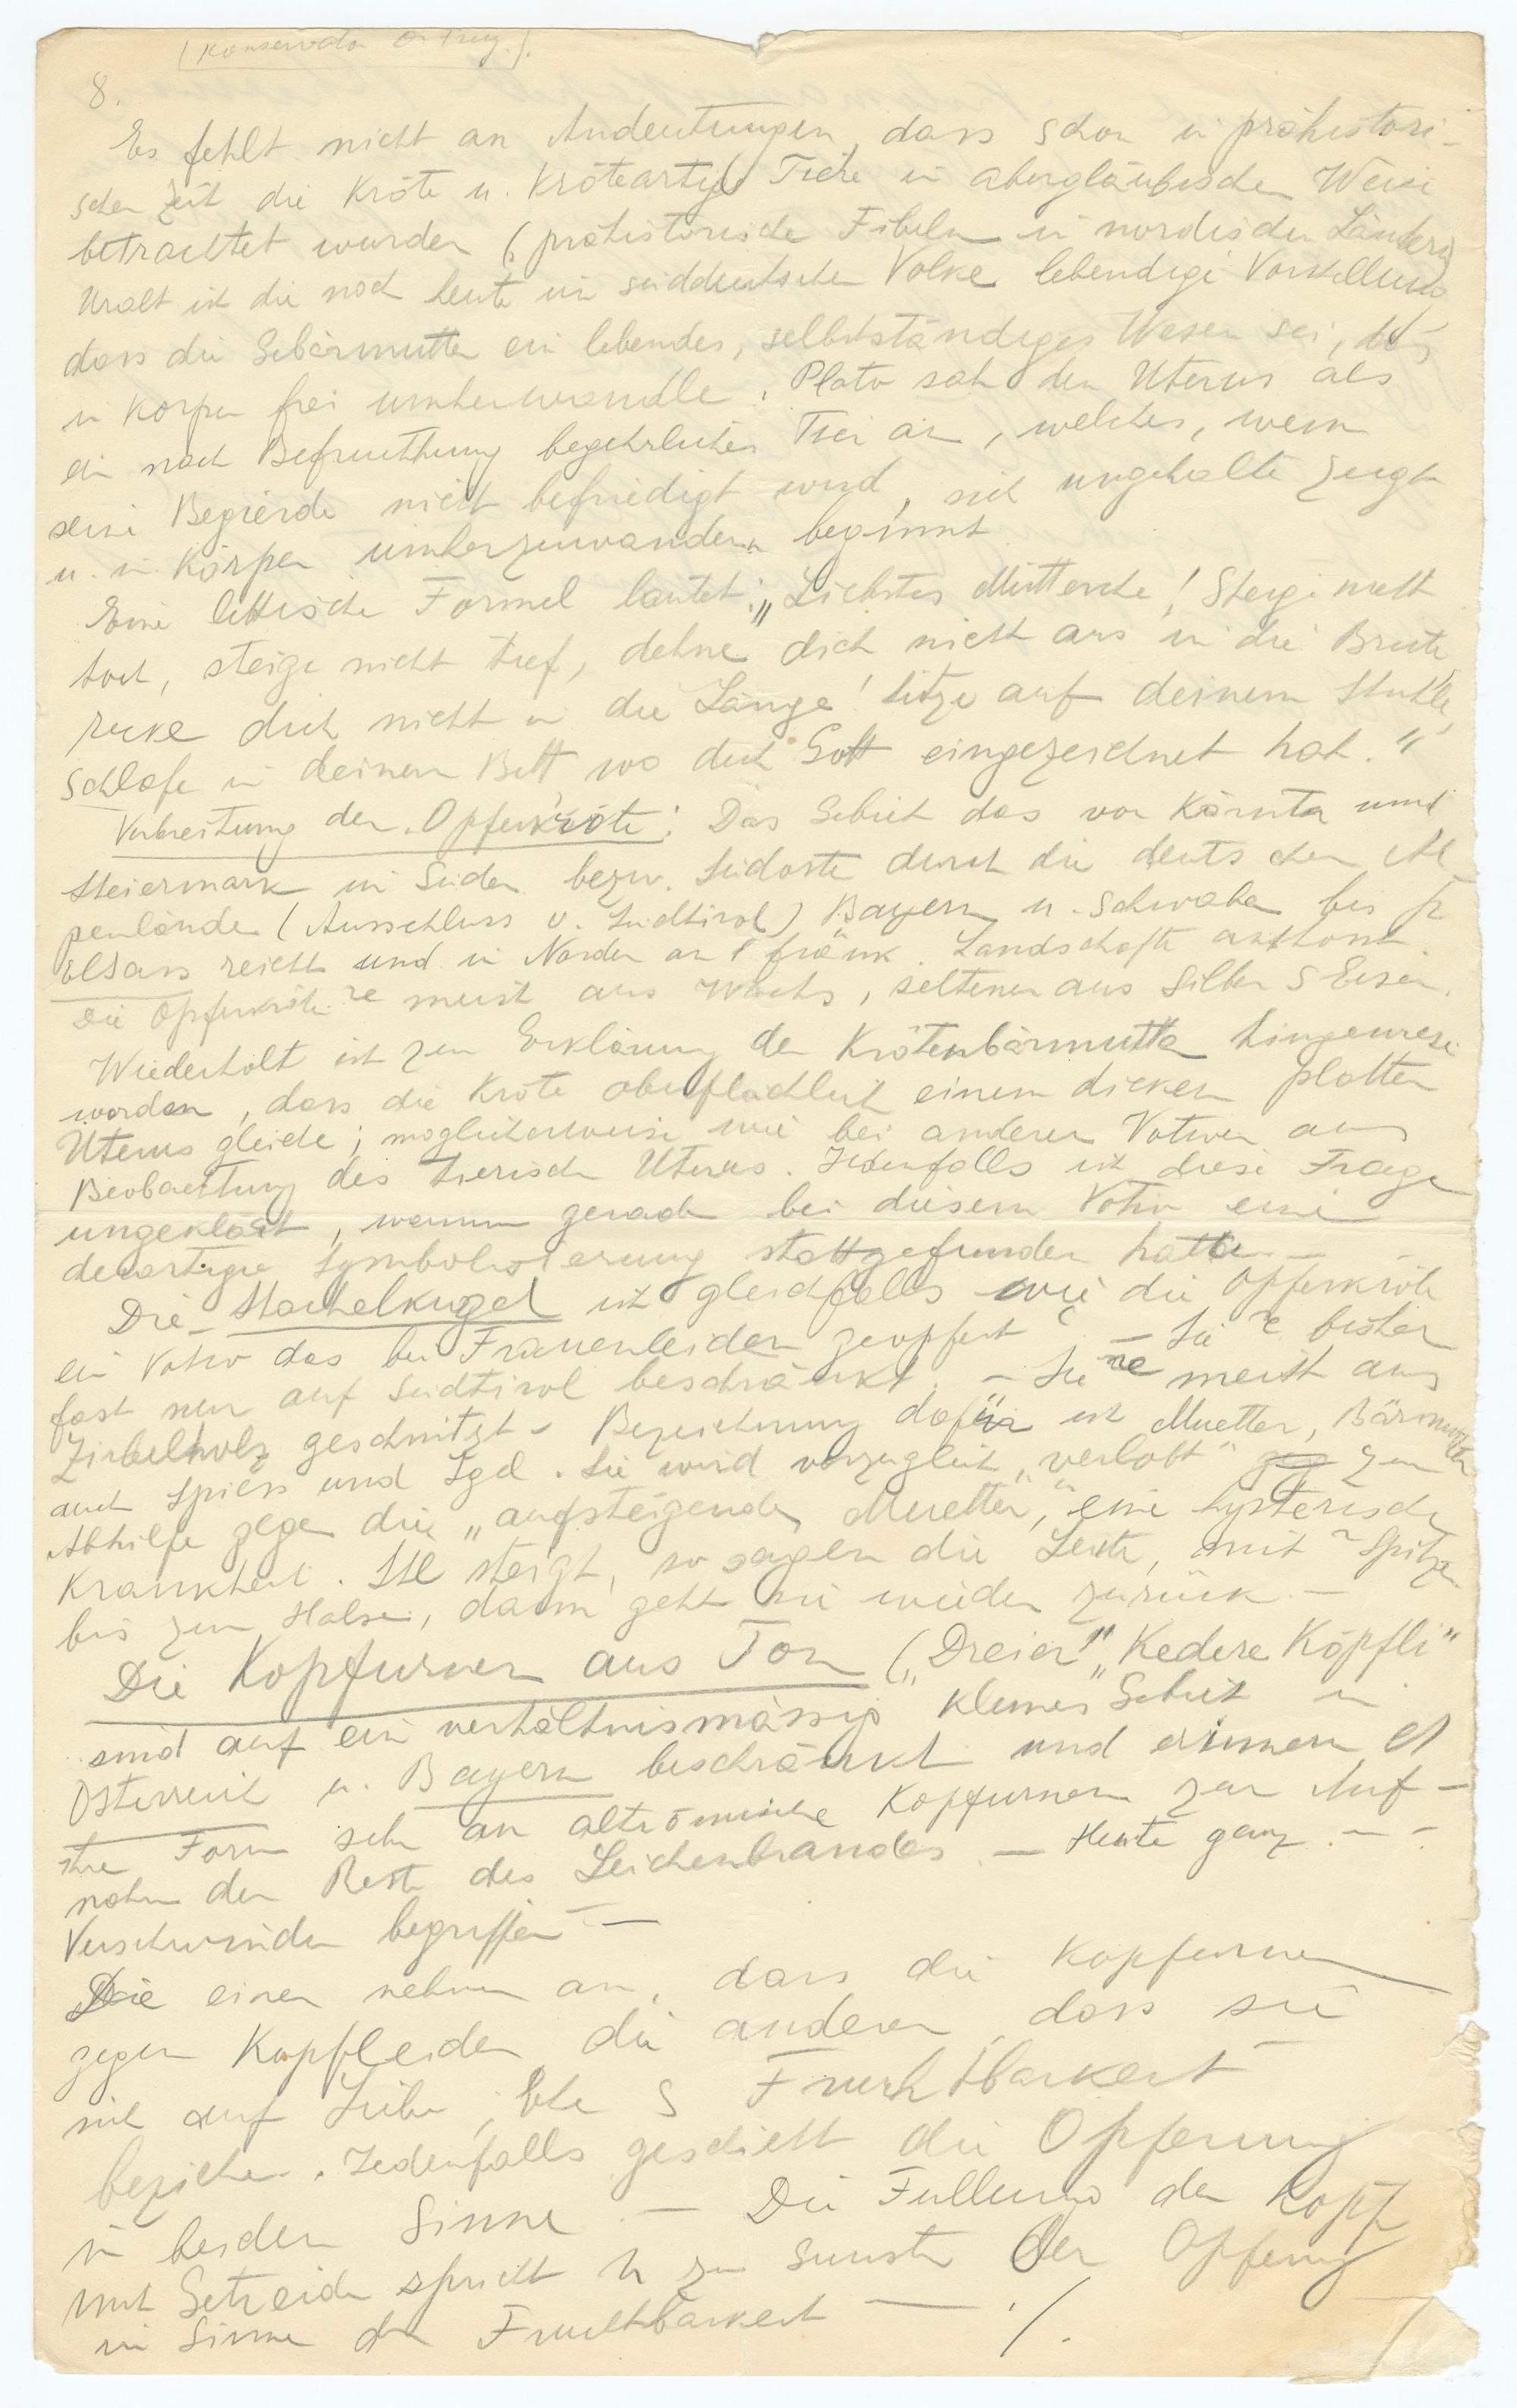 (Konservator
8.
Es fehlt nicht an Andeutungen, dass schon in prähistori-
schen Zeit die Kröte u. Kröteartige Tiere in abergläubischen Weise
betrachtet wurden (prähistorische Fibeln in nordischen Ländern)
Uralt ist die noch heute im süddeutschen Volke lebendige Vorstellung
dass die Gebärmutter ein lebendes, selbstständiges Wesen sei, das
im Körper frei umherwandle. Plato sah den Uterus als
ein nach Befruchtung begehrliches Tier an, welches, wenn
seine Begierde nicht befriedigt wird, sich ungehalten zeigt
u. im Körper umherzuwandern beginnt.
Eine lettische Formel lautet: „Liebstes Mütterche! Steige nicht
hoch, steige nicht tief, dehne dich nicht aus in die Breite
recke dich nicht in die Länge! Sitze auf deinem Stuhle,
Schlafe in deinem Bett, wo dich Gott eingezeichnet hat."
Verbreitung der Opferkröte: Das Gebiet das von Kärnten und
Steiermark im Süden bezw. Südosten durch die deutschen Al-
penländer (Ausschluss v. Südtirol) Bayern u. Schwaben bis z
Elsass reicht und im Norden an fränk. Landschaften
Die Opferkröte meist aus Wachs, seltener aus Silber Eisen.
Wiederholt ist zur Erklärung der Krötenbärmutter hingewiese
worden, dass die Kröte oberflächlich einem dicken platten
Uterus gleiche; möglicherweise wie bei anderen Votiven aus
Beobachtung des tierischen Uterus. Jedenfalls ist diese Frage
ungeklärt, warum gerade bei diesem Votiv eine
derartige Symbolisierung stattgefunden hatte. — -
Die Stachelkugel ist gleichfalls wie die Opferkröte
ein Votiv das bei Frauenleiden geopfert — Sie bisher
fast nur auf Südtirol beschränkt. — Sie meist aus
Zirbelholz geschnitzt - Bezeichnung dafür ist Muetter, Bärmutter
auch Spiess und Igel. Sie wird vorzüglich „verlobt" zur
Abhilfe gegen die „aufsteigende Muetter", eine hysterische
Krankheit. Sie steigt, so sagen die Leute, mit Spitzen
bis zum Halse, dann geht sie wieder zurück. —
Die Kopfurnen aus Ton („Dreier", „Kedere Köpfli"
sind auf ein verhältnismässig kleines Gebiet in
Österreich u. Bayern beschränkt und erinnern
ihre Form sehr an altrömische Kopfurnen zur Auf-
nahme der Reste des Leichenbrandes. — Heute ganz — -
Verschwinden begriffen —
Die einen nehmen an, dass die Kopfurnen
gegen Kopfleiden die anderen, dass sie
sich auf Liebe, Ehe Fruchtbarkeit
beziehen. Jedenfalls geschieht die Opferung
in beiden Sinne. — Die Füllung der Köpfe
mit Getreide spricht zu Gunsten der Opferung
im Sinne der Fruchtbarkeit — ./.